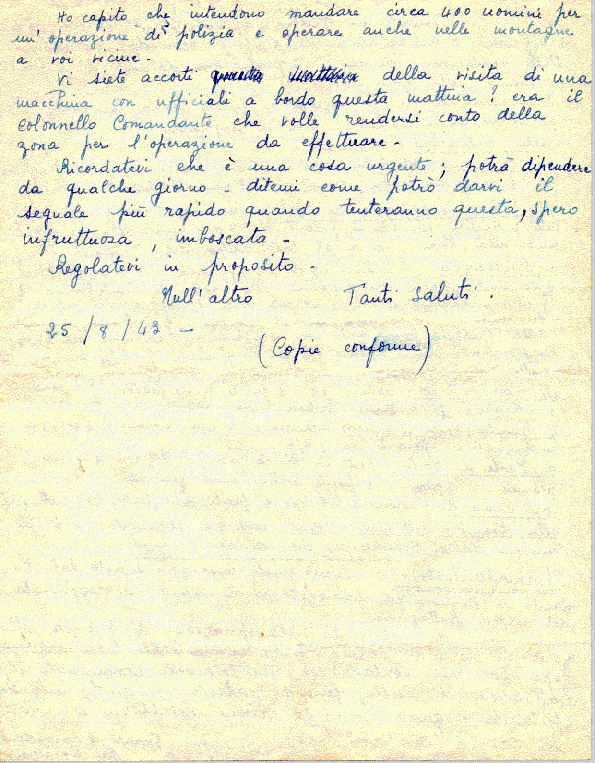 Ho capito che intendono mandare circa 400 uomini per
un'operazione di polizia e operare anche nelle montagne
a voi vicine.
Vi siete accorti questa mattina della visita di una
macchina con ufficiali a bordo questa mattina? era il
Colonnello Comandante che volle rendersi conto della
zona per l'operazione da effettuare -
Ricordatevi che è una cosa urgente; potrà dipendere
da qualche giorno - ditemi come potrò darvi il
segnale più rapido quando tenteranno questa, spero
infruttuosa, imboscata -
Regolatevi in proposito -
Null'altro Tanti saluti.
25/8/43 -
(Copie conforme)